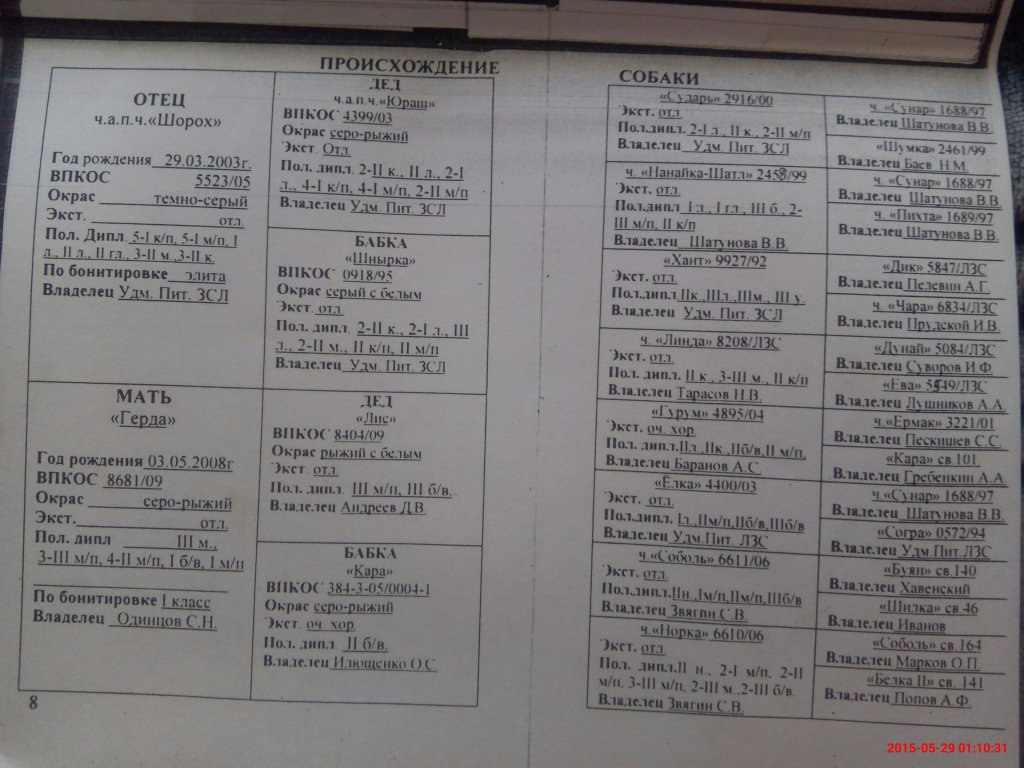 ПРОИСХОЖДЕНИЕ
ОТЕЦ
ч.а.п.ч.«Шорох»
Год рождения 29.03.2003г.
ВПКОС 5523/05
Окрас темно-серый
Экст. отл.
Пол. Дипл. 5-I к/п, 5-I м/п, I
л., II л., II гл., 3-II м.,3-II к.
По бонитировке элита
Владелец Удм. Пит. ЗСЛ
МАТЬ
«Герда»
Год рождения 03.05.2008г
ВПКОС 8681/09
Окрас серо-рыжий
Экст. отл.
Пол. дипл III м.,
3-III м/п, 4-II м/п, I б/в, I м/п
По бонитировке I класс
Владелец Одинцов С.Н.
8
ДЕД
ч.а.п.ч.«Юраш»
ВПКОС 4399/03
Окрас серо-рыжий
Экст. Отл.
Пол. дипл. 2-II к., II л., 2-I
л., 4-I к/п, 4-I м/п, 2-II м/п
Владелец Удм. Пит. ЗСЛ
БАБКА
«Шнырка»
ВПКОС 0918/95
Окрас серый с белым
Экст. отл.
Пол. дипл. 2-II к., 2-I л., III
л., 2-II м., II к/п, II м/п
Владелец Удм. Пит. ЗСЛ
ДЕД
«Лис»
ВПКОС 8404/09
Окрас рыжий с белым
Экст. отл.
Пол. дипл. III м/п, III б/в.
Владелец Андреев Д.В.
БАБКА
«Кара»
ВПКОС 384-3-05/0004-1
Окрас серо-рыжий
Экст. оч. хор.
Пол. дипл. II б/в.
Владелец Илющенко О.С.
СОБАКИ
«Сударь» 2916/00
Экст. отл.
Пол.дипл. 2-I л., II к., 2-II м/п
Владелец Удм. Пит. ЗСЛ
ч. «Нанайка-Шатл» 2458/99
Экст. отл.
Пол.дипл. I л., I гл., III б., 2-
III м/п, II к/п
Владелец Шатунова В.В.
«Хант» 9927/92
Экст. отл.
Пол.дипл. IIк.,IIIл.,IIIм., III у.
Владелец Удм. Пит. ЗСЛ
ч. «Линда» 8208/ЛЗС
Экст. отл.
Пол. дипл. II к., 3-III м., II к/п
Владелец Тарасов Н.В.
«Гурум» 4895/04
Экст. оч. хор.
Пол.дипл.IIл.,IIк.,IIб/в,II м/п,
Владелец Баранов А.С.
«Ёлка» 4400/03
Экст. отл.
Пол.дипл. Iл.,IIм/п,IIб/в,IIIб/в
Владелец Удм.Пит. ЛЗС
ч.«Соболь» 6611/06
Экст. отл.
Пол.дипл.IIн.,Iм/п,IIм/п,IIIб/в
Владелец Звягин С.В.
ч.«Норка» 6610/06
Экст. отл.
Пол. дипл.II н., 2-I м/п, 2-II
м/п, 3-III м/п, 2-III м.,2-III б/в.
Владелец Звягин С.В.
ч. «Сунар» 1688/97
Владелец Шатунова В.В.
«Шумка» 2461/99
Владелец Баев Н.М.
ч. «Сунар» 1688/97
Владелец Шатунова В.В.
ч. «Пихта» 1689/97
Владелец Шатунова В.В.
«Дик» 5847/ЛЗС
Владелец Пелевин А.Г.
ч. «Чара» 6834/ЛЗС
Владелец Прудской И.В.
«Дунай» 5084/ЛЗС
Владелец Суворов И.Ф.
«Ева» /ЛЗС
Владелец Лушников А.А.
ч.«Ермак» 3221/01
Владелец Пескишев С.С.
«Кара» св.101
Владелец Гребенкин А.А.
ч.«Сунар» 1688/97
Владелец Шатунова В.В.
«Согра» 0572/94
Владелец Удм.Пит.ЛЗС
«Буян» св.140
Владелец Хавенский
«Шилка» св.46
Владелец Иванов
«Соболь» св 164
Владелец Марков О.П.
«Белка II» св. 141
Владелец Попов А.Ф.
2015-05-29 01:10:31